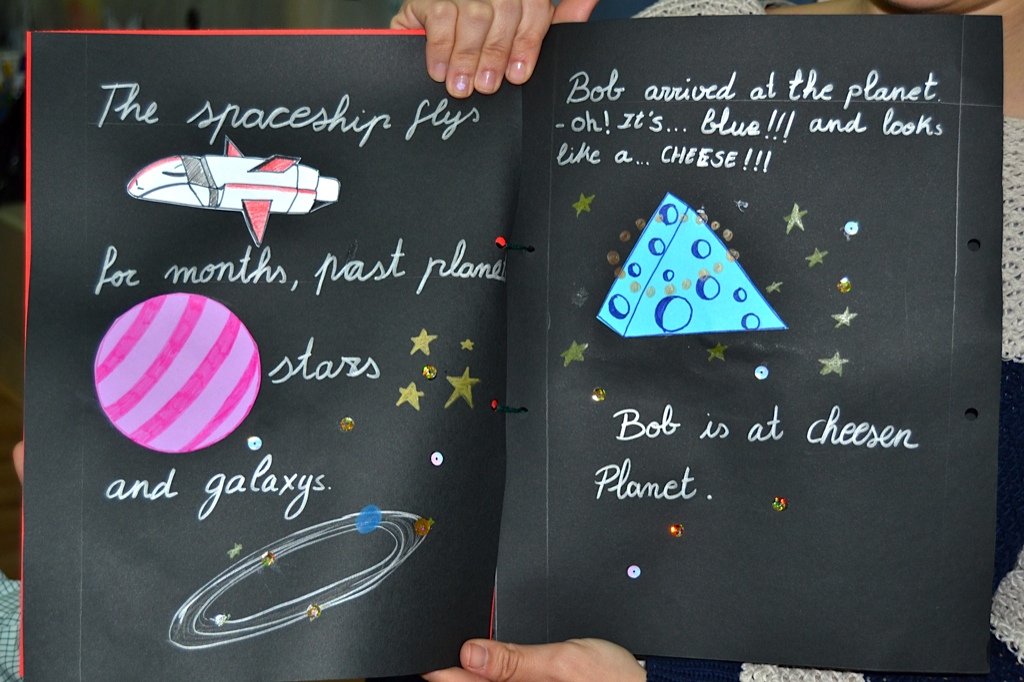 The spaceship flys
for months, past planet
stars
and galaxys.
Bob arrived at the planet.
- oh! It's... blue!!! and looks
like a... CHEESE!!!
Bob is at cheesen
Planet.